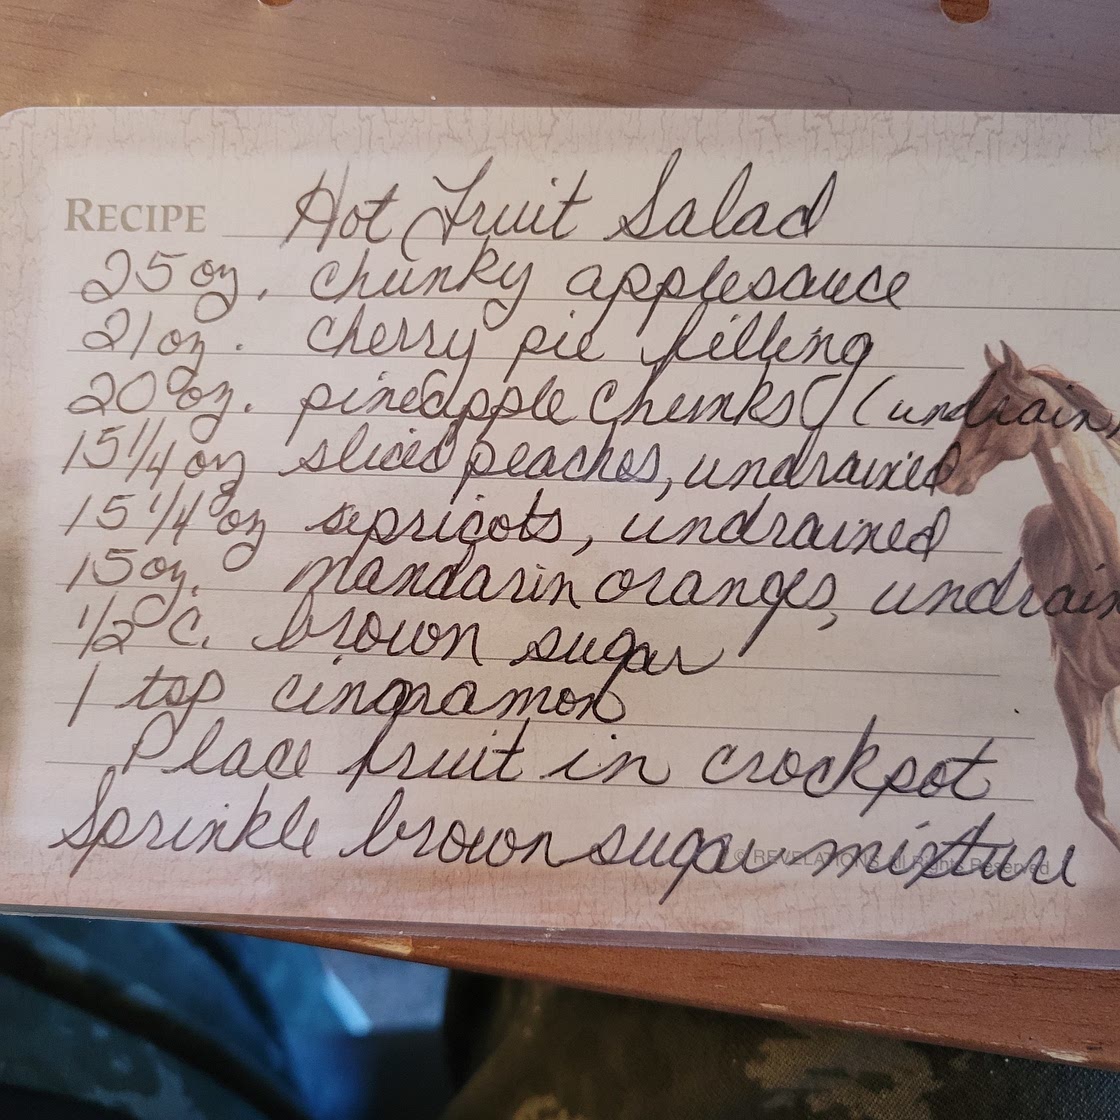 RECIPE Hot Fruit Salad
25 oz. chunky applesauce
21 oz. cherry pie filling
20 oz. pineapple chunks (undrain
15 1/4 oz sliced peaches, undrained
15 1/4 oz apricots, undrained
15 oz. mandarin oranges, undrain
1/2 c. brown sugar
1 tsp cinnamon
Place fruit in crockpot
Sprinkle brown sugar mixture
© REVELATIONS All Rights Reserved